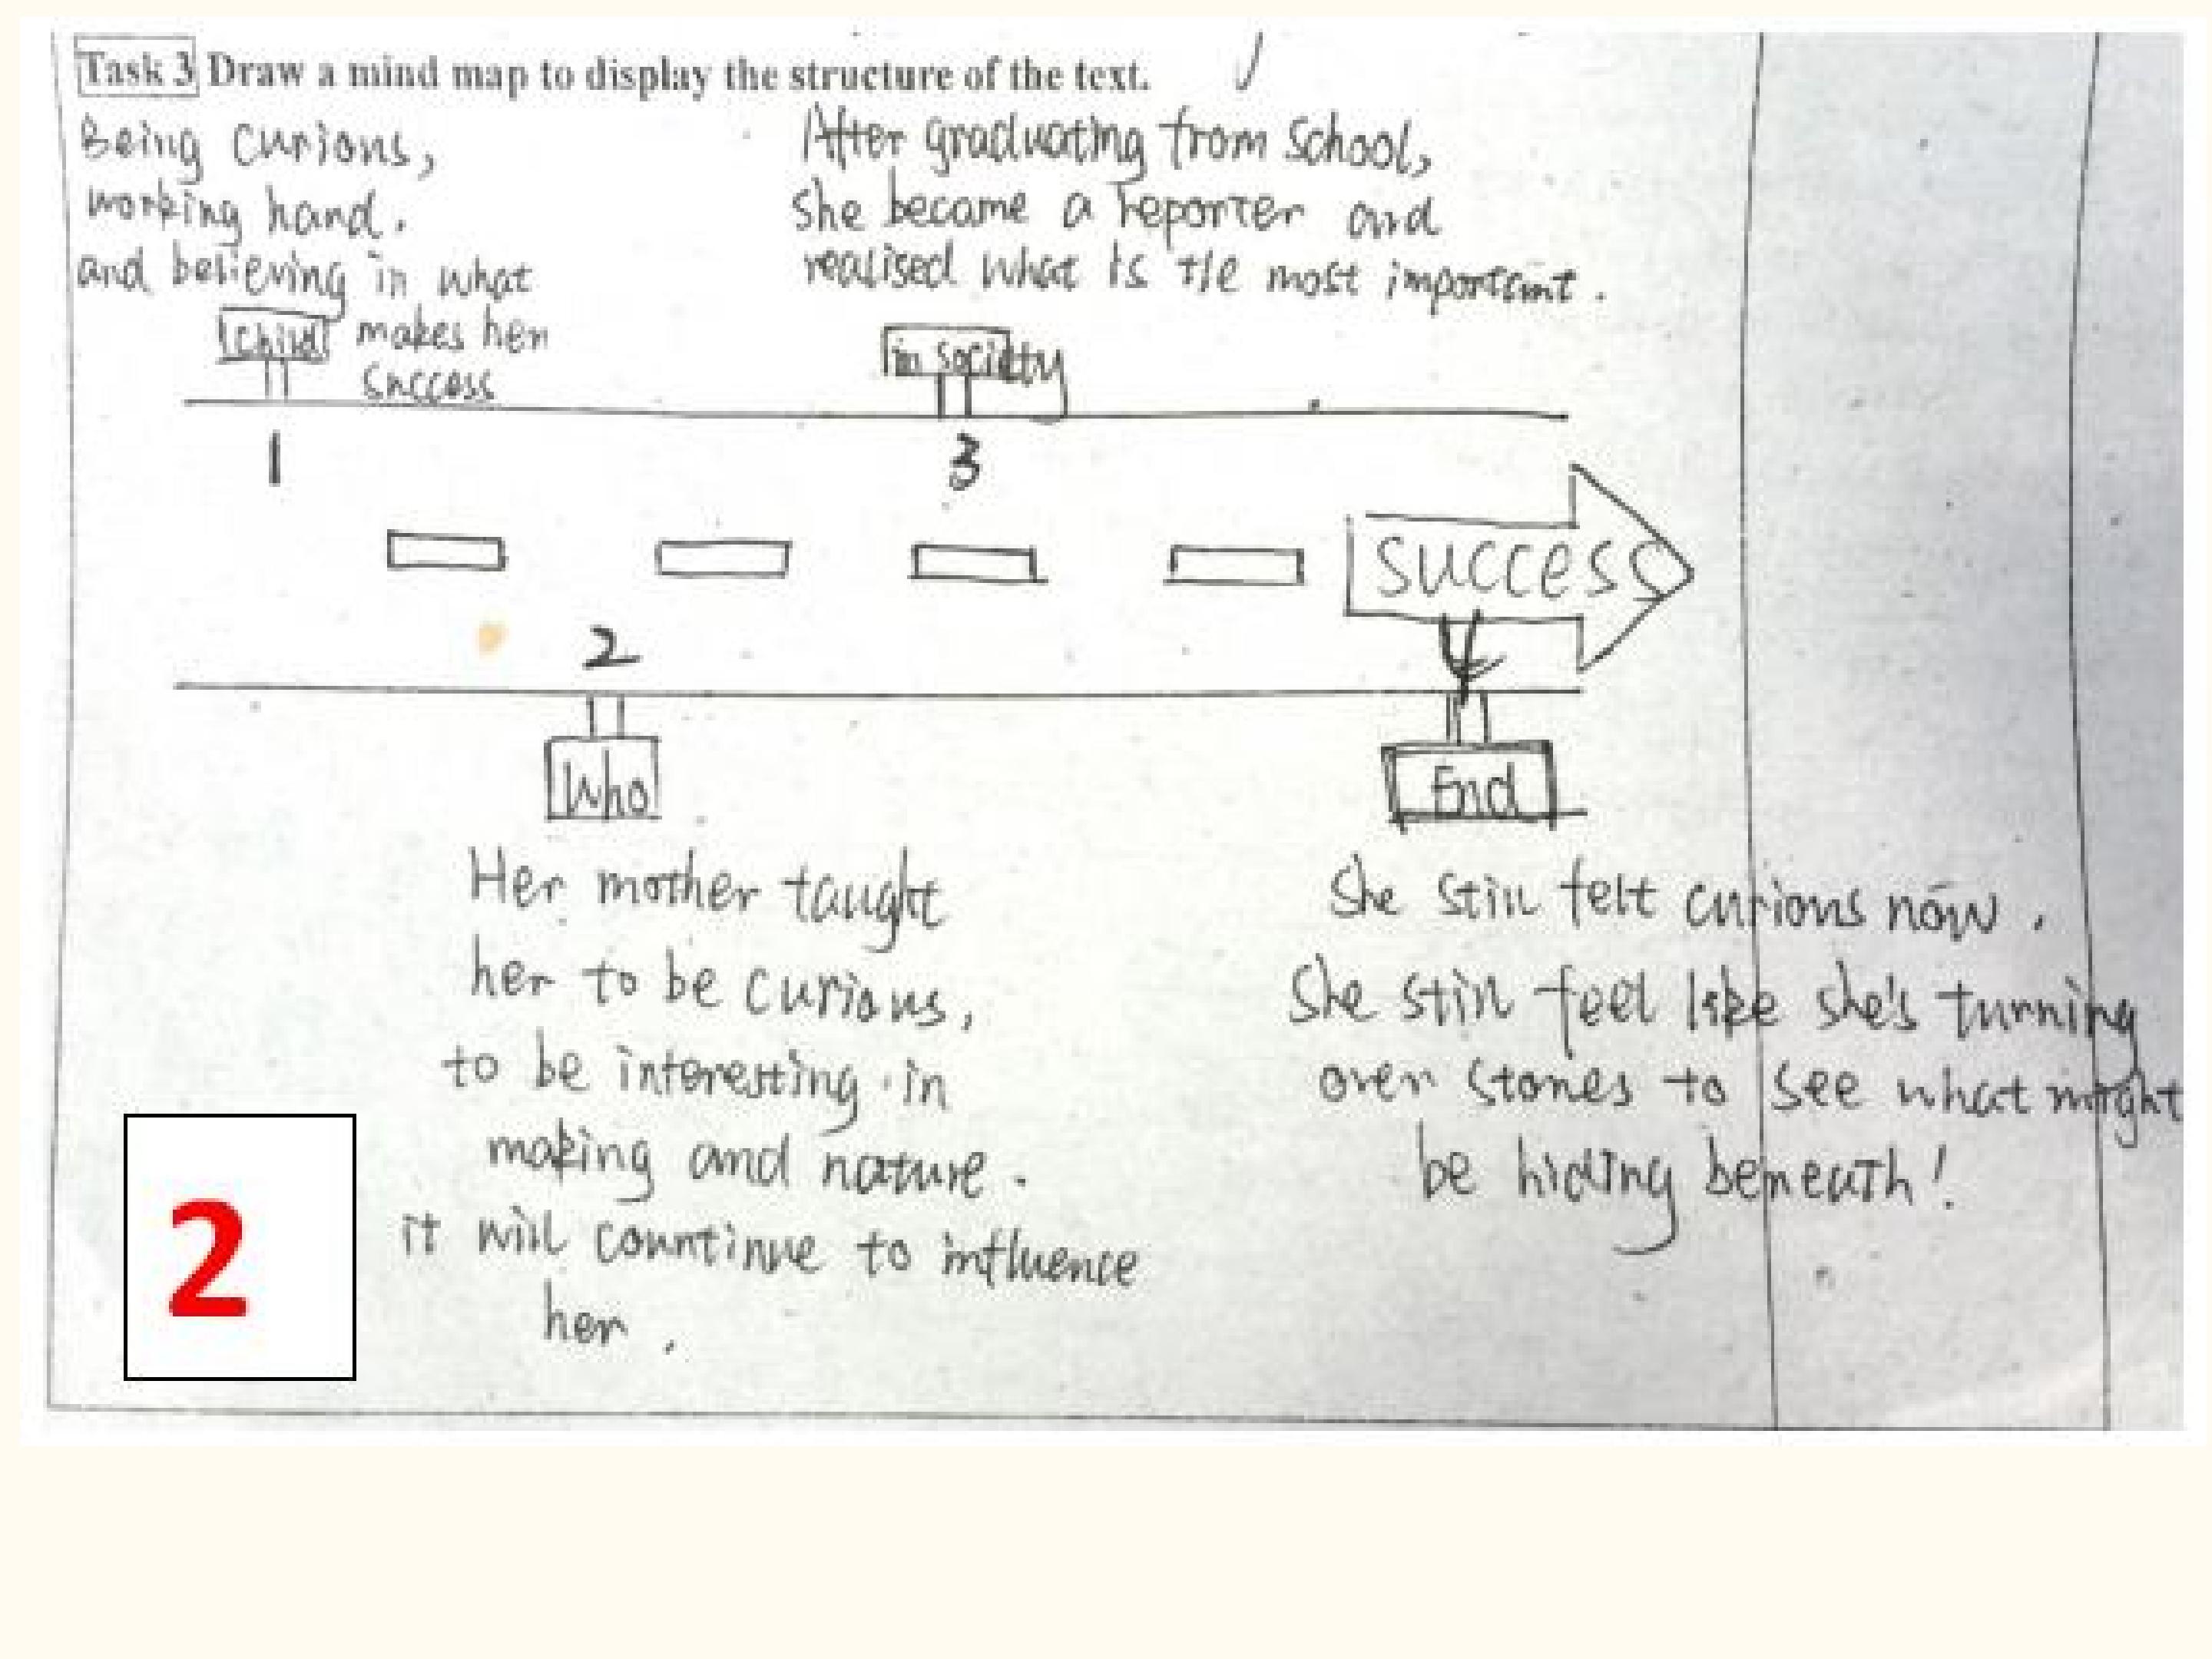 Task 3 Draw a mind map to display the structure of the text.
Being curions,
working hand.
and believing in what
makes her
success
Child
1
After graduating from school,
she became a reporter and
realised what is the most important.
in society
3
success
2
Who
Her mother taught
her to be curious,
to be interesting in
making and nature.
it will countinue to influence
her.
4
End
She still felt curious now.
She still feel like she's turning
over stones to see what might
be hiding beneath!
2